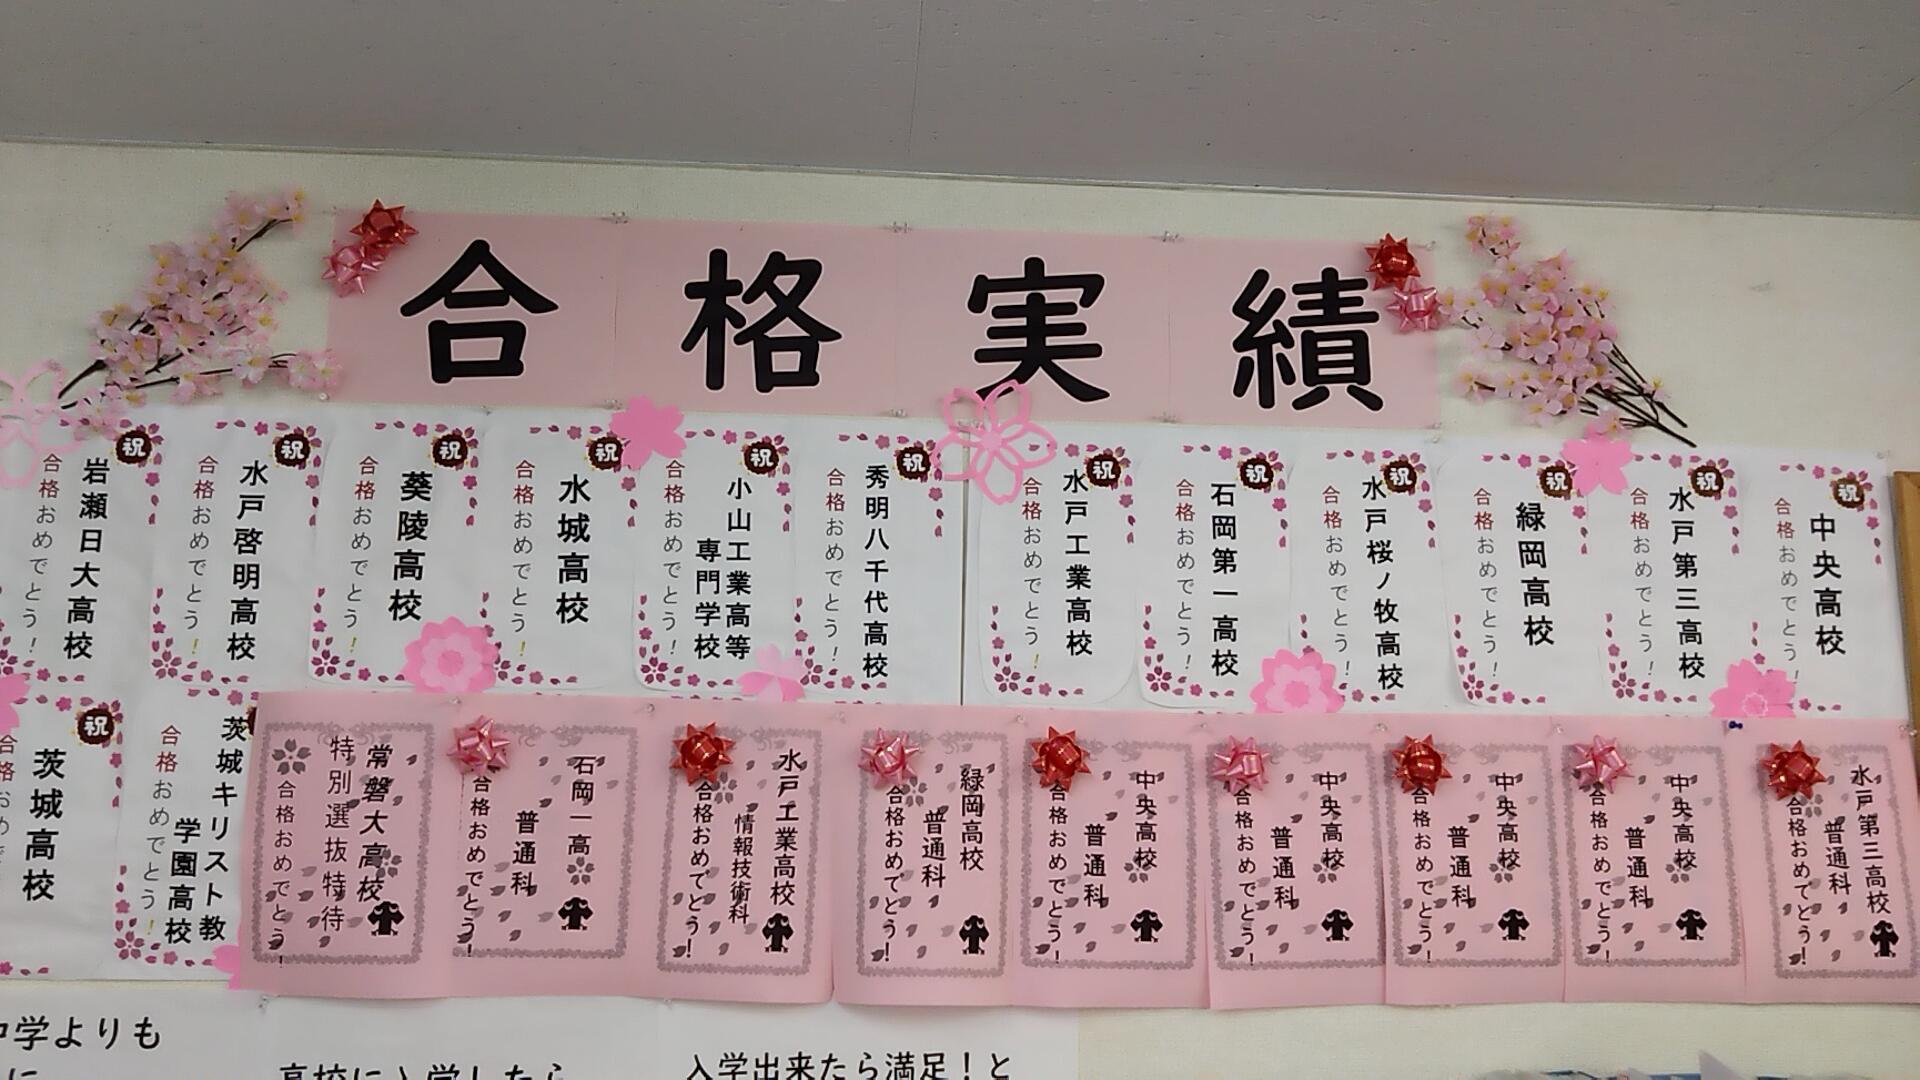 合格実績
祝
中央高校
合格おめでとう!
祝
水戸第三高校
合格おめでとう!
祝
緑岡高校
合格おめでとう!
祝
水戸桜ノ牧高校
合格おめでとう!
祝
石岡第一高校
合格おめでとう!
祝
水戸工業高校
合格おめでとう!
祝
秀明八千代高校
合格おめでとう!
祝
小山工業高等
専門学校
合格おめでとう!
祝
水城高校
合格おめでとう!
祝
葵陵高校
合格おめでとう!
祝
水戸啓明高校
合格おめでとう!
祝
岩瀬日大高校
合格おめでとう!
水戸第三高校
普通科
合格おめでとう!
中央高校
普通科
合格おめでとう!
中央高校
普通科
合格おめでとう!
中央高校
普通科
合格おめでとう!
中央高校
普通科
合格おめでとう!
緑岡高校
普通科
合格おめでとう!
水戸工業高校
情報技術科
合格おめでとう!
石岡一高
普通科
合格おめでとう!
常磐大高校
特別選抜特待
合格おめでとう!
茨城キリスト教
学園高校
合格おめでとう!
祝
茨城高校
合格おめ
中学よりも
に
高校に入学したら
入学出来たら満足!と